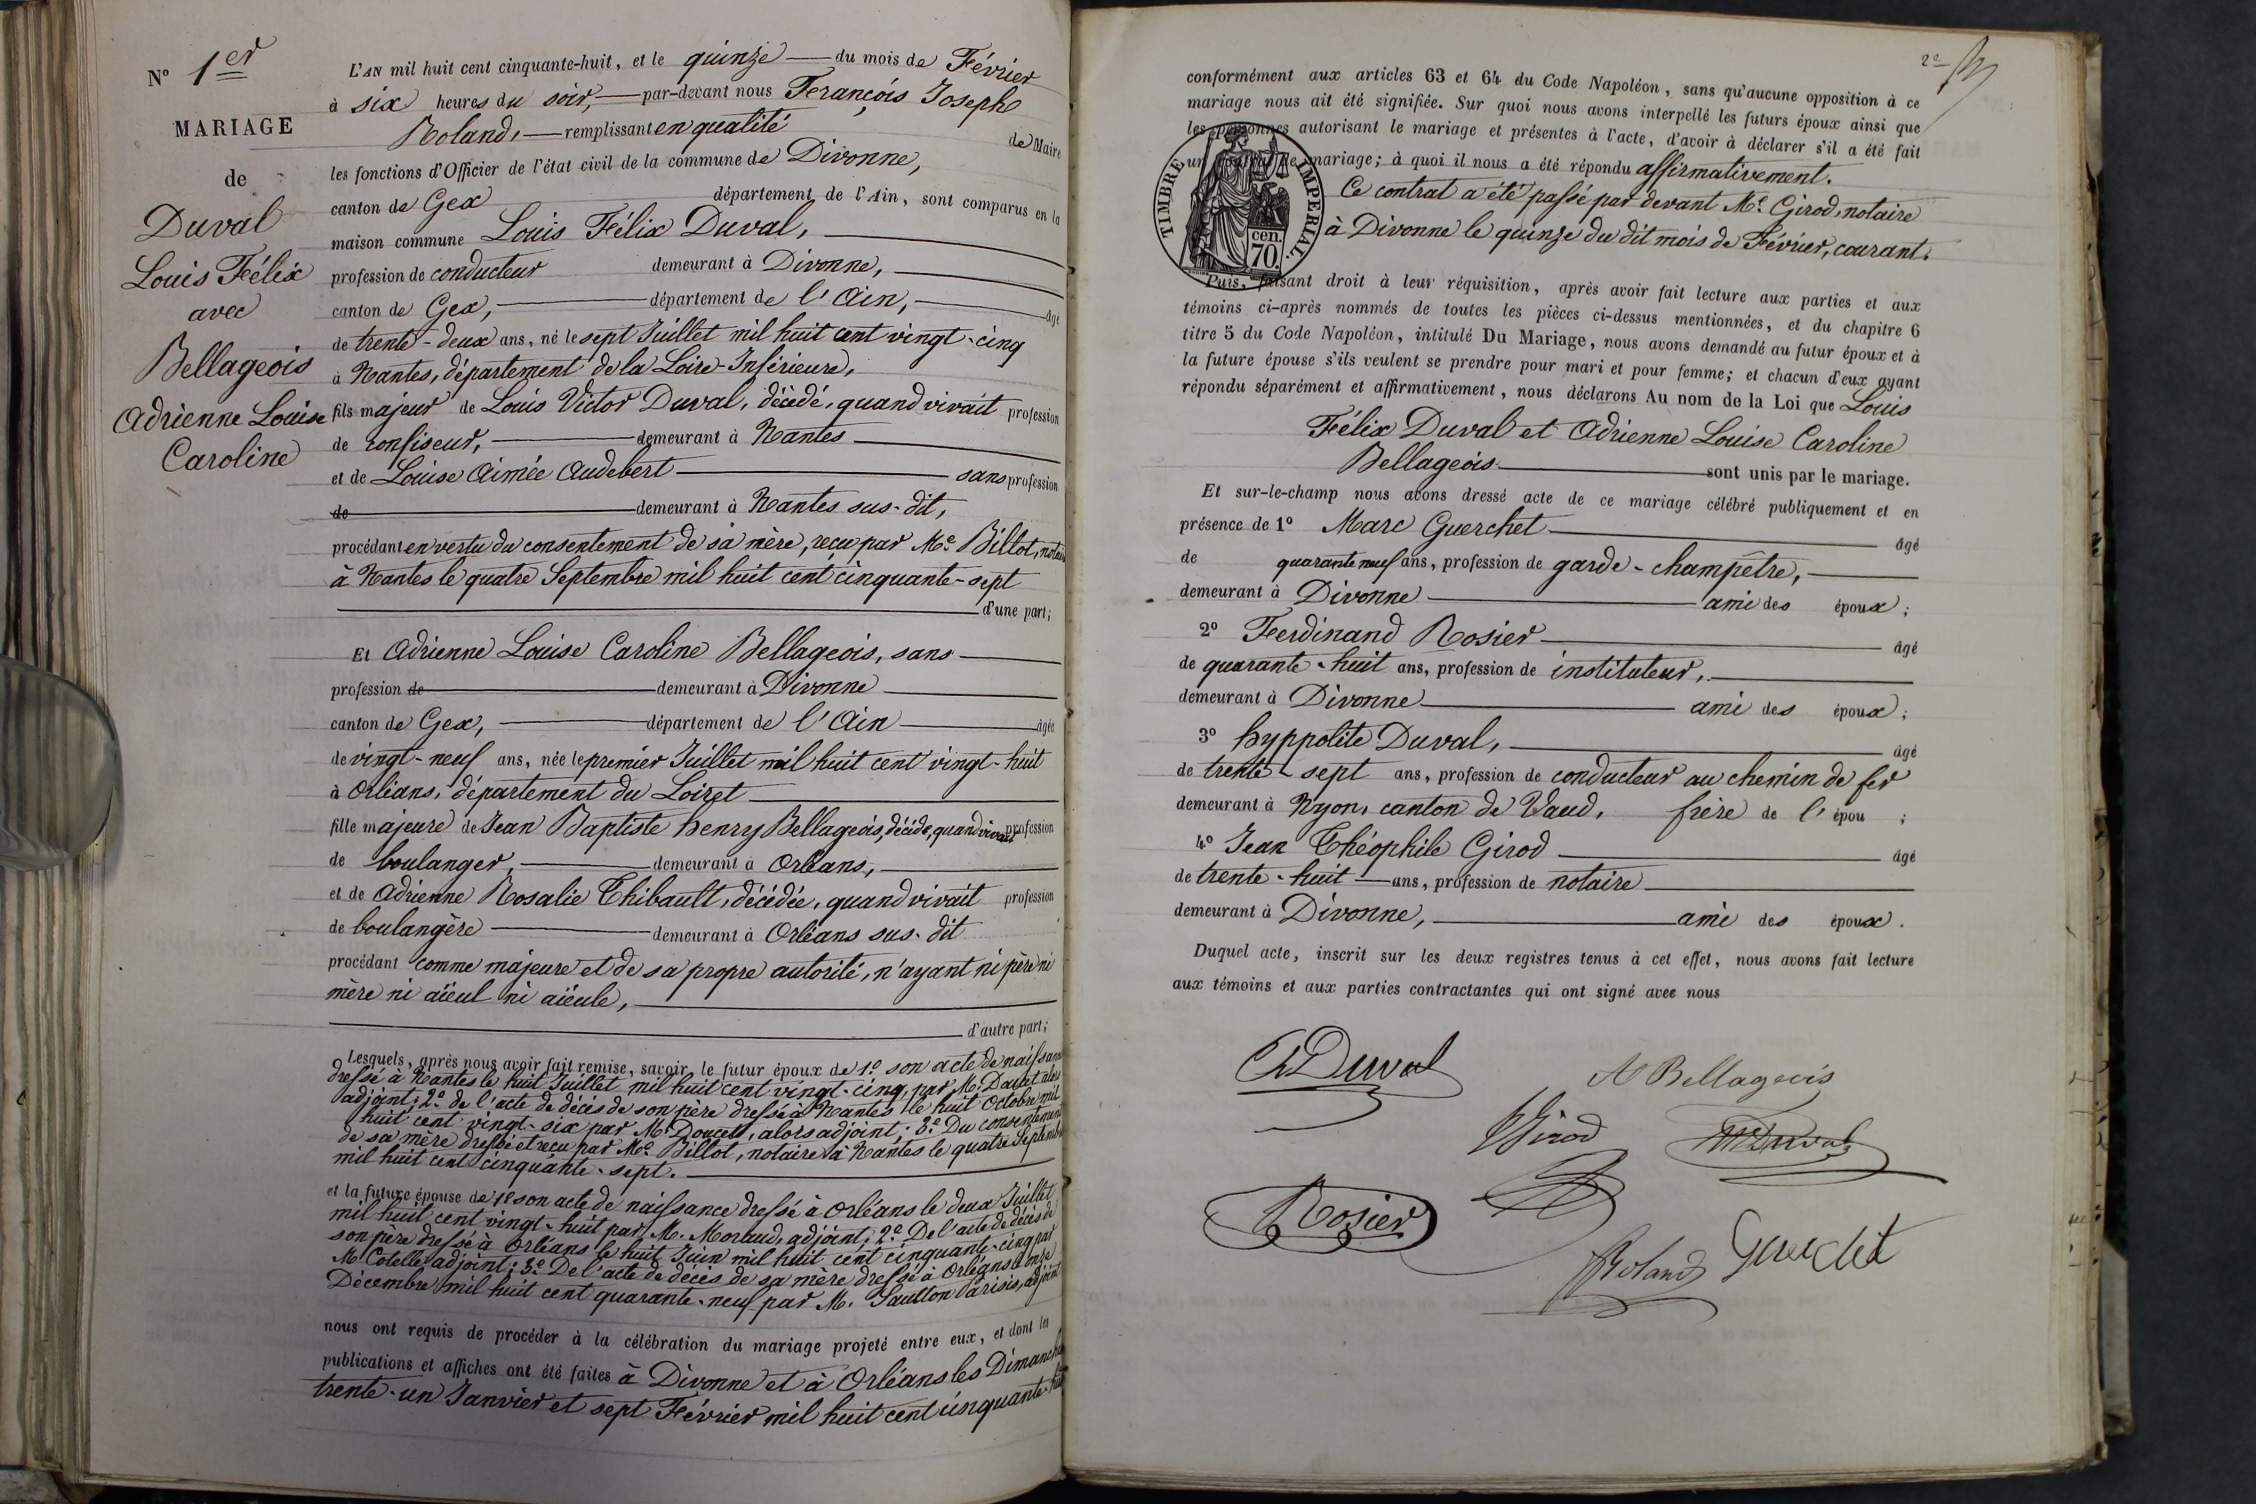 N° 1er
MARIAGE
de
Duval
Louis Félix
avec
Bellageois
Adrienne Louise
Caroline
L'AN mil huit cent cinquante-huit, et le quinze du mois de Février
à six heures du soir, par-devant nous François Joseph
Roland, remplissant en qualité de Maire
les fonctions d'Officier de l'état civil de la commune de Divonne,
canton de Gex département de l'Ain, sont comparus en la
maison commune Louis Félix Duval,
profession de conducteur demeurant à Divonne,
canton de Gex, département de l'Ain, âgé
de trente-deux ans, né le sept Juillet mil huit cent vingt-cinq
à Nantes, département de la Loire-Inférieure,
fils majeur de Louis Victor Duval, décédé, quand vivait profession
de confiseur, demeurant à Nantes
et de Louise Aimée Audebert sans profession
de demeurant à Nantes sus-dit,
procédant en vertu du consentement de sa mère, reçu par Me Billot, notaire
à Nantes le quatre Septembre mil huit cent cinquante-sept
d'une part;
Et Adrienne Louise Caroline Bellageois, sans
profession de demeurant à Divonne
canton de Gex, département de l'Ain âgée
de vingt-neuf ans, née le premier Juillet mil huit cent vingt-huit
à Orléans, département du Loiret
fille majeure de Jean Baptiste henry Bellageois, décédé, quand vivait profession
de boulanger, demeurant à Orléans,
et de Adrienne Rosalie Thibault, décédée, quand vivait profession
de boulangère demeurant à Orléans sus-dit
procédant comme majeure et de sa propre autorité, n'ayant ni père ni
mère ni aïeul ni aïeule,
d'autre part;
Lesquels, après nous avoir fait remise, savoir le futur époux de 1° son acte de naissance
dressé à Nantes le huit Juillet mil huit cent vingt-cinq, par M. Doucet alors
adjoint; 2° de l'acte de décès de son père dressé à Nantes le huit Octobre mil
huit cent vingt-six par M. Doucet, alors adjoint; 3° Du consentement
de sa mère dressé et reçu par Me Billot, notaire à Nantes le quatre Septembre
mil huit cent cinquante-sept.
et la future épouse de 1° son acte de naissance dressé à Orléans le deux Juillet
mil huit cent vingt-huit par M. adjoint; 2° De l'acte de décès de
son père dressé à Orléans le huit Juin mil huit cent cinquante-cinq par
M. Cotelle adjoint; 3° De l'acte de décès de sa mère dressé à Orléans le onze
Décembre mil huit cent quarante-neuf par M. Saullon Parisis, adjoint
nous ont requis de procéder à la célébration du mariage projeté entre eux, et dont les
publications et affiches ont été faites à Divonne et à Orléans les Dimanches
trente-un Janvier et sept Février mil huit cent cinquante-huit
2e
conformément aux articles 63 et 64 du Code Napoléon, sans qu'aucune opposition à ce
mariage nous ait été signifiée. Sur quoi nous avons interpellé les futurs époux ainsi que
les personnes autorisant le mariage et présentes à l'acte, d'avoir à déclarer s'il a été fait
un contrat de mariage; à quoi il nous a été répondu affirmativement.
TIMBRE IMPERIAL.
cen.
70.
Ce contrat a été passé par devant Me Girod, notaire
à Divonne le quinze du dit mois de Février, courant.
Puis, faisant droit à leur réquisition, après avoir fait lecture aux parties et aux
témoins ci-après nommés de toutes les pièces ci-dessus mentionnées, et du chapitre 6
titre 5 du Code Napoléon, intitulé Du Mariage, nous avons demandé au futur époux et à
la future épouse s'ils veulent se prendre pour mari et pour femme; et chacun d'eux ayant
répondu séparément et affirmativement, nous déclarons Au nom de la Loi que Louis
Félix Duval et Adrienne Louise Caroline
Bellageois sont unis par le mariage.
Et sur-le-champ nous avons dressé acte de ce mariage célébré publiquement et en
présence de 1° Marc Guerchet âgé
de quarante neuf ans, profession de garde-champêtre,
demeurant à Divonne ami des époux;
2° Ferdinand Rosier âgé
de quarante-huit ans, profession de instituteur,
demeurant à Divonne ami des époux;
3° hyppolite Duval, âgé
de trente-sept ans, profession de conducteur au chemin de fer
demeurant à Nyon, canton de Vaud, frère de l'épou ;
4° Jean Théophile Girod âgé
de trente-huit ans, profession de notaire
demeurant à Divonne, ami des époux.
Duquel acte, inscrit sur les deux registres tenus à cet effet, nous avons fait lecture
aux témoins et aux parties contractantes qui ont signé avec nous
Duval
A Bellageois
Girod
Duval
Rosier
Roland
Guerchet